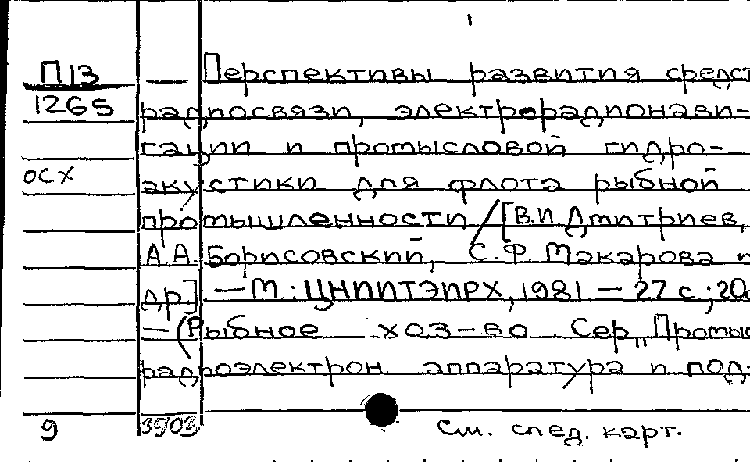 П13 — Перспективы развития средст
1265 радиосвязи, электрорадионави-
гации и промысловой гидро-
осх акустики для флота рыбной
промышленности / [В.И. Дмитриев,
А.А. Борисовский, С.Ф. Макарова и
др.] — М.: ЦНИИТЭИРХ, 1981 — 27 с.; 20
— (Рыбное хоз-во Сер „Промыс
радиоэлектрон аппаратура и под-
9 3903 См. след. карт.